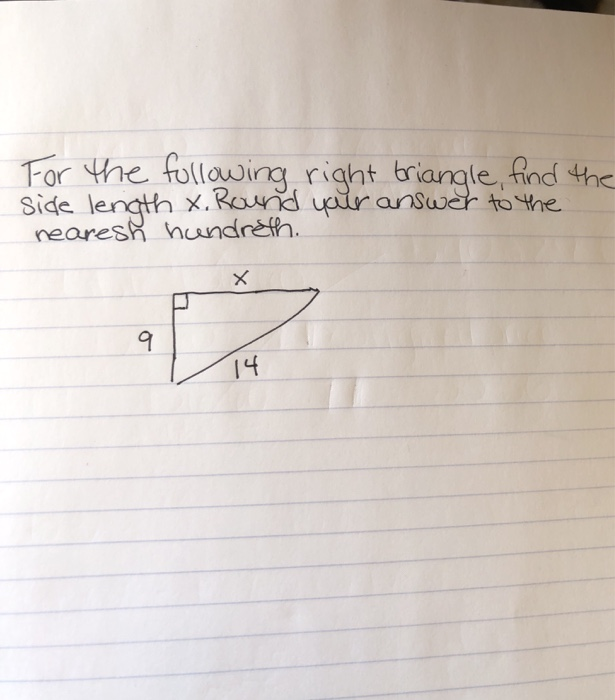 For the following right triangle, find the
side length x. Round your answer to the
nearesh hundreth.
x
9
14